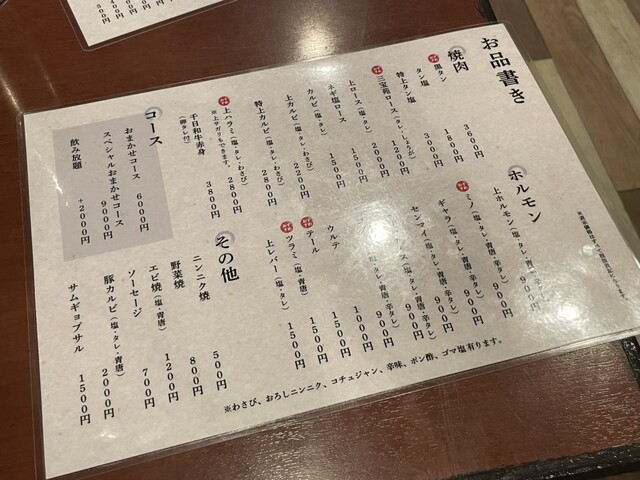 お品書き
焼肉
黒タン 3600円
タン塩 1800円
特上タン塩 3000円
三宝苑ロース（タレ・しょうが） 1200円
上ロース（塩・タレ） 2000円
ネギ塩ロース 1500円
カルビ（塩・タレ） 1500円
上カルビ（塩・タレ・わさび） 2200円
特上カルビ（塩・タレ・わさび） 2800円
上ハラミ（塩・タレ・わさび） 2800円
※上サガリもできます。
千日和牛赤身 3800円
（卵タレ付）
コース
おまかせコース 6000円
スペシャルおまかせコース 9000円
飲み放題 +2000円
ホルモン
上ホルモン（塩・タレ・青唐・辛タレ） 900円
ミノ（塩・タレ・青唐・辛タレ） 900円
ギャラ（塩・タレ・青唐・辛タレ） 900円
センマイ（塩・タレ・青唐・辛タレ） 900円
ス（塩・タレ・青唐・辛タレ） 900円
1000円
ウルテ 1000円
テール 1500円
ツラミ（塩・青唐） 1500円
上レバー（塩・タレ） 1500円
その他
ニンニク焼 500円
野菜焼 800円
エビ焼（塩・青唐） 1200円
ソーセージ 700円
豚カルビ（塩・タレ・青唐） 2000円
サムギョプサル 1500円
※わさび、おろしニンニク、コチュジャン、辛味、ポン酢、ゴマ塩有ります。